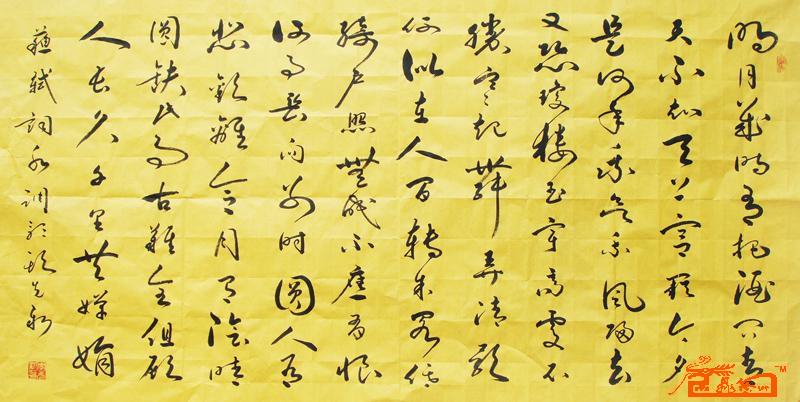 明月几時有把酒问青
天不知天上宫阙今夕
是何年我欲乘风归去
又恐琼楼玉宇高处不
勝寒起舞弄清影
何似在人间轉朱阁低
綺户照無眠不應有恨
何事長向别时圆人有
悲歡離合月有陰晴
圆缺此事古難全但願
人長久千里共嬋娟
蘇軾詞水调歌頭